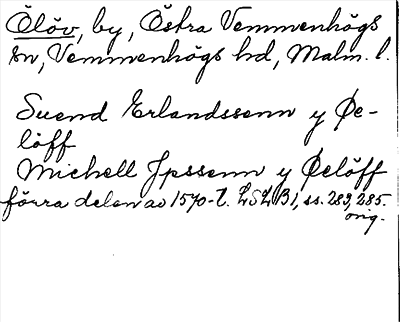 Ölöv, by, Östra Vemmenhögs
sn, Vemmenhögs hd, Malm. l.
Suend Erlandssenn y Øe-
löff
Michell Jpssenn y Øelöff
förra delen av 1570-t. LSLB1, ss. 283, 285.
orig.